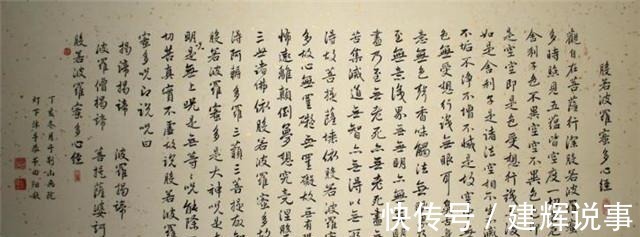 般若波羅蜜多心經
觀自在菩薩行深般若波羅
多時照見五蘊皆空度一切
舍利子色不異空空不異色
是空空即是色受想行識
如是舍利子是諸法空相不
不垢不淨不增不減是故空
色無受想行識無眼耳
意無色聲香味觸法無
至無意識界無無明亦無
盡乃至無老死亦無老死盡
苦集滅道無智亦無得以無
故菩提薩埵依般若波羅
多故心無罣礙無罣礙故無有
怖遠離顛倒夢想究竟涅槃
三世諸佛依般若波羅蜜多故
得阿耨多羅三藐三菩提故知
般若波羅蜜多是大神咒是大
明咒是無上咒是無等等咒能除
切苦真實不虛故說般若波羅
蜜多咒即說咒曰
揭諦揭諦 波羅揭諦
波羅僧揭諦 菩提薩婆訶
般若波羅蜜多心經
丁亥冬月于荆山画院
灯下
快传号 / 建辉说事